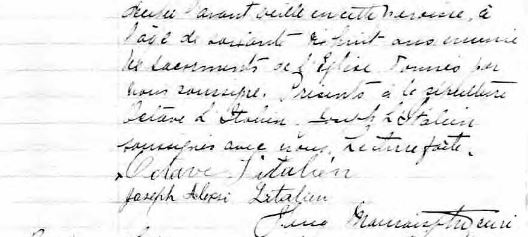 décédé l'avant veille en cette paroisse, à
l'âge de soixante dix huit ans munie
des sacrements de l'Eglise. Donnés par
nous soussigné. Présents à la sépulture
Octave L'Italien. Joseph L'Italien
soussignés avec nous, Lecture faite.
Octave L'italien
Joseph Alexis Letalien